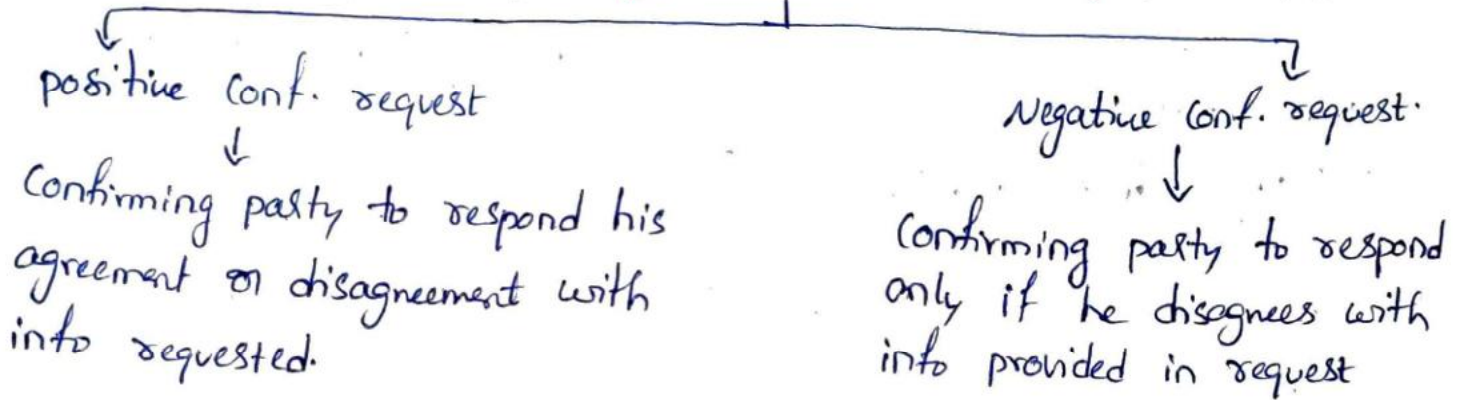 positive conf. request
Confirming party to respond his
agreement or disagreement with
info requested.
Negative conf. request.
Confirming party to respond
only if he disagrees with
info provided in request